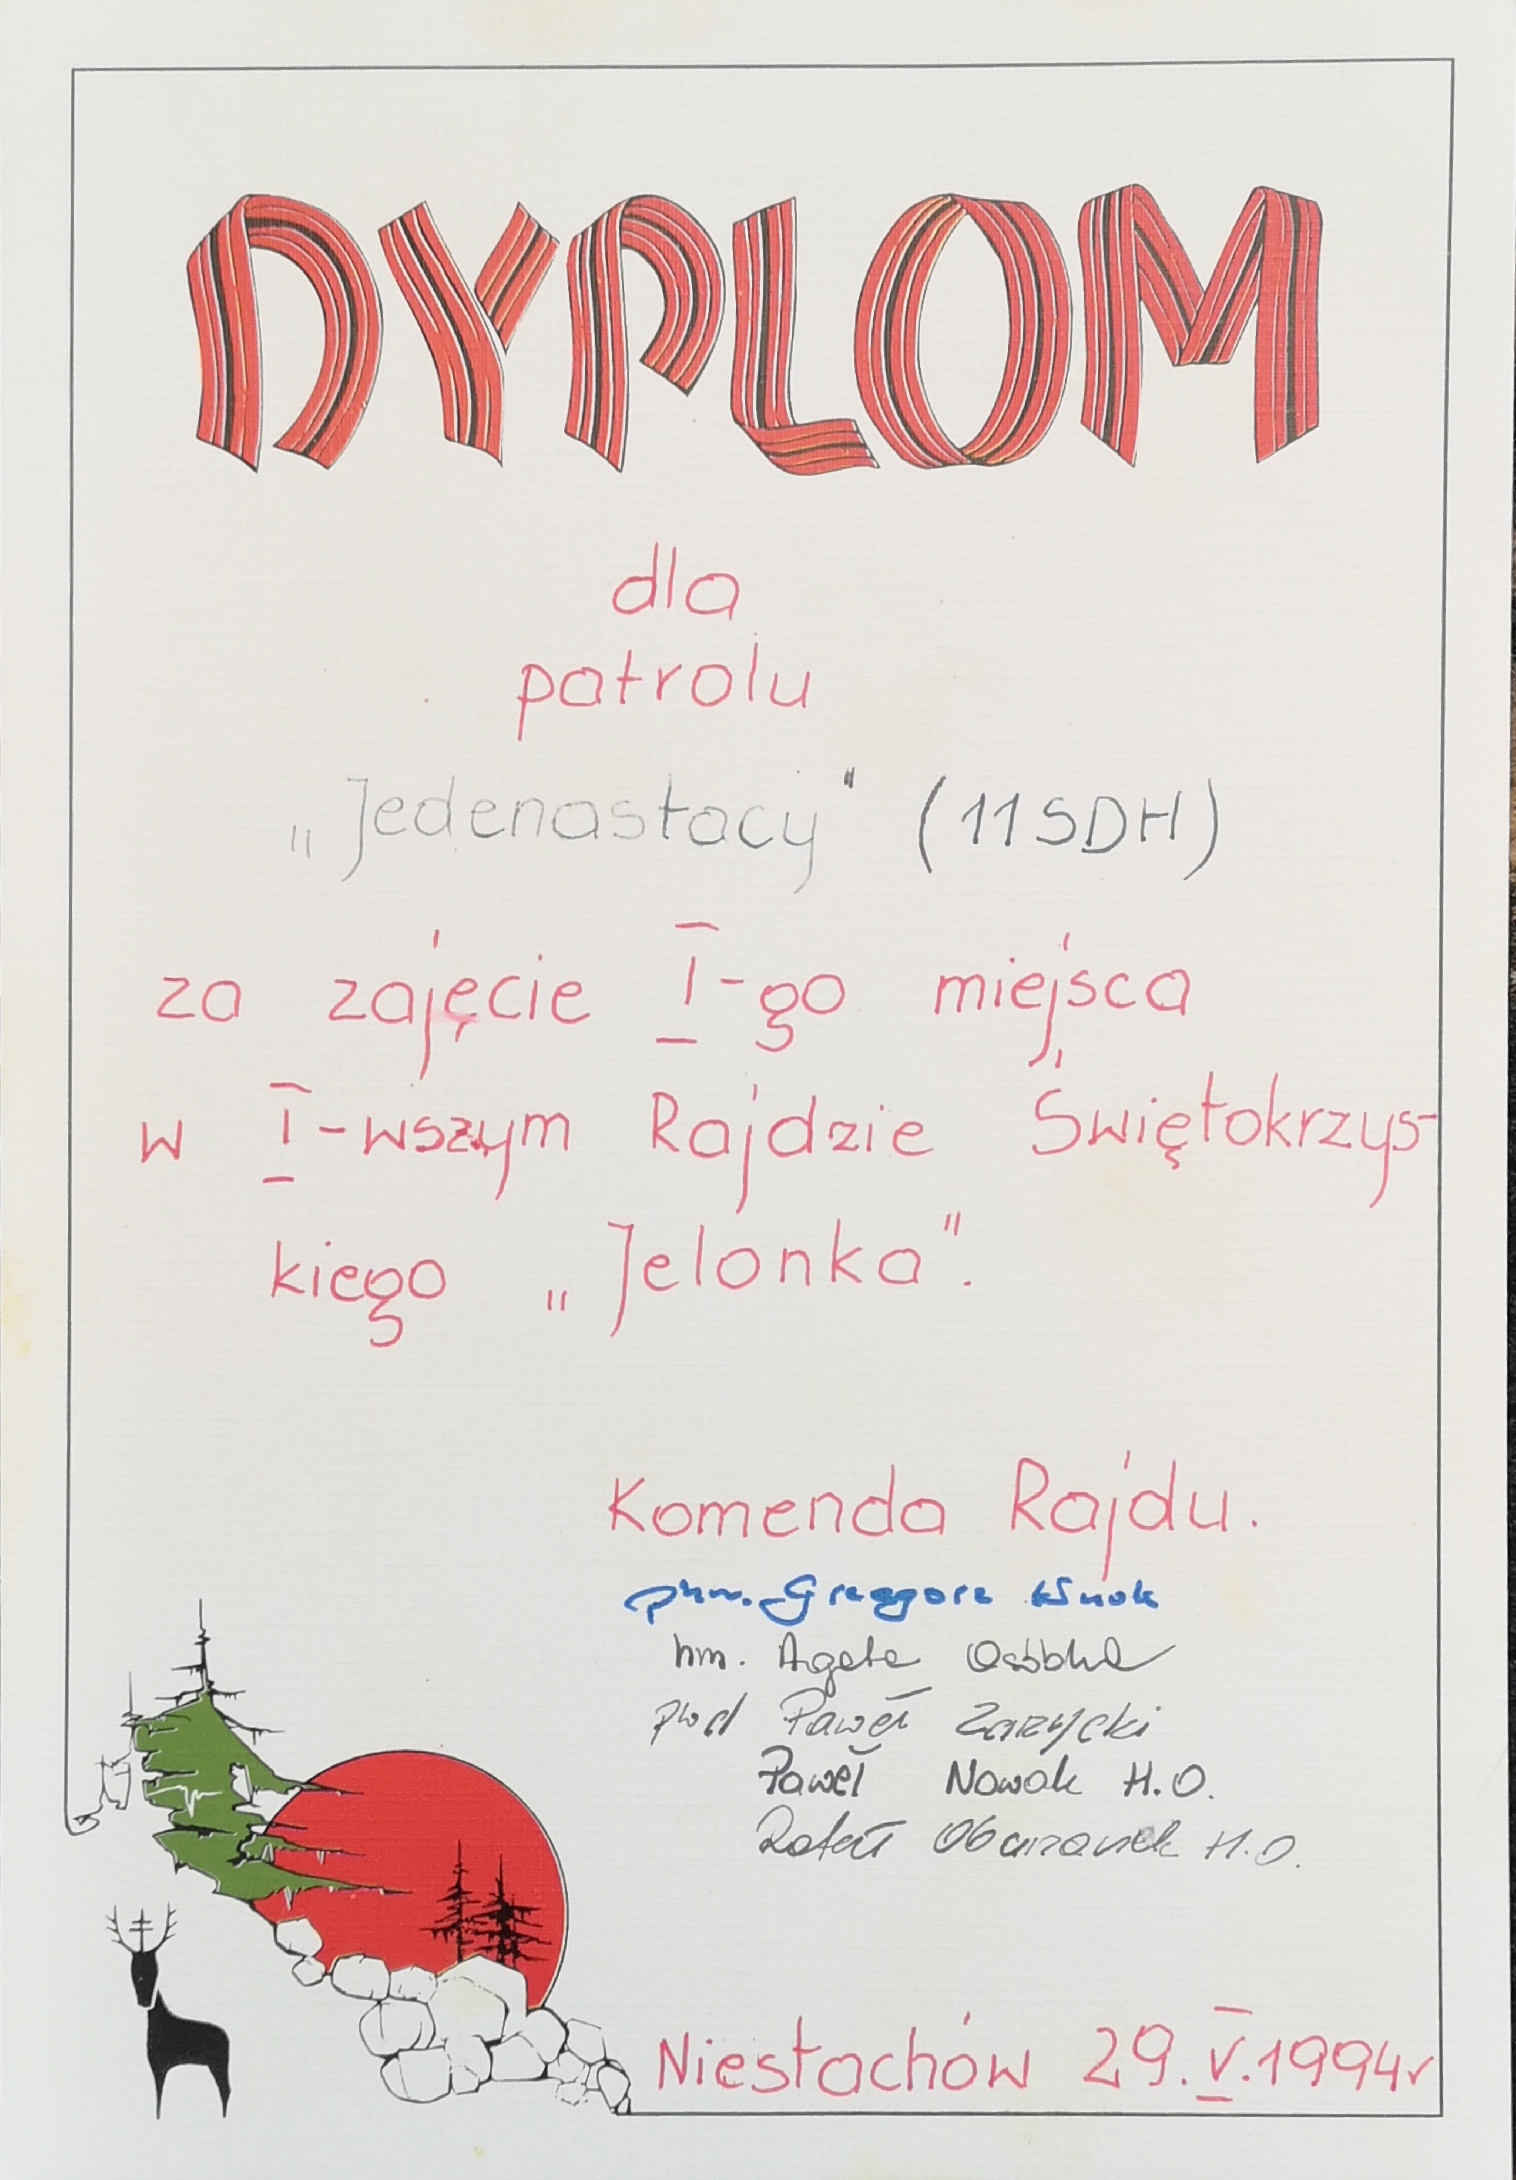 DYPLOM
dla
patrolu
„Jedenastacy" (11 SDH)
za zajęcie I-go miejsca
w I-wszym Rajdzie Świętokrzys-
kiego „Jelonka".
Komenda Rajdu.
phm. Grzegorz
hm. Agata Osóbka
pwd Paweł Zarzycki
Paweł Nowak H.O.
Rafał Obarzanek H.O.
Niestachów 29.V.1994r